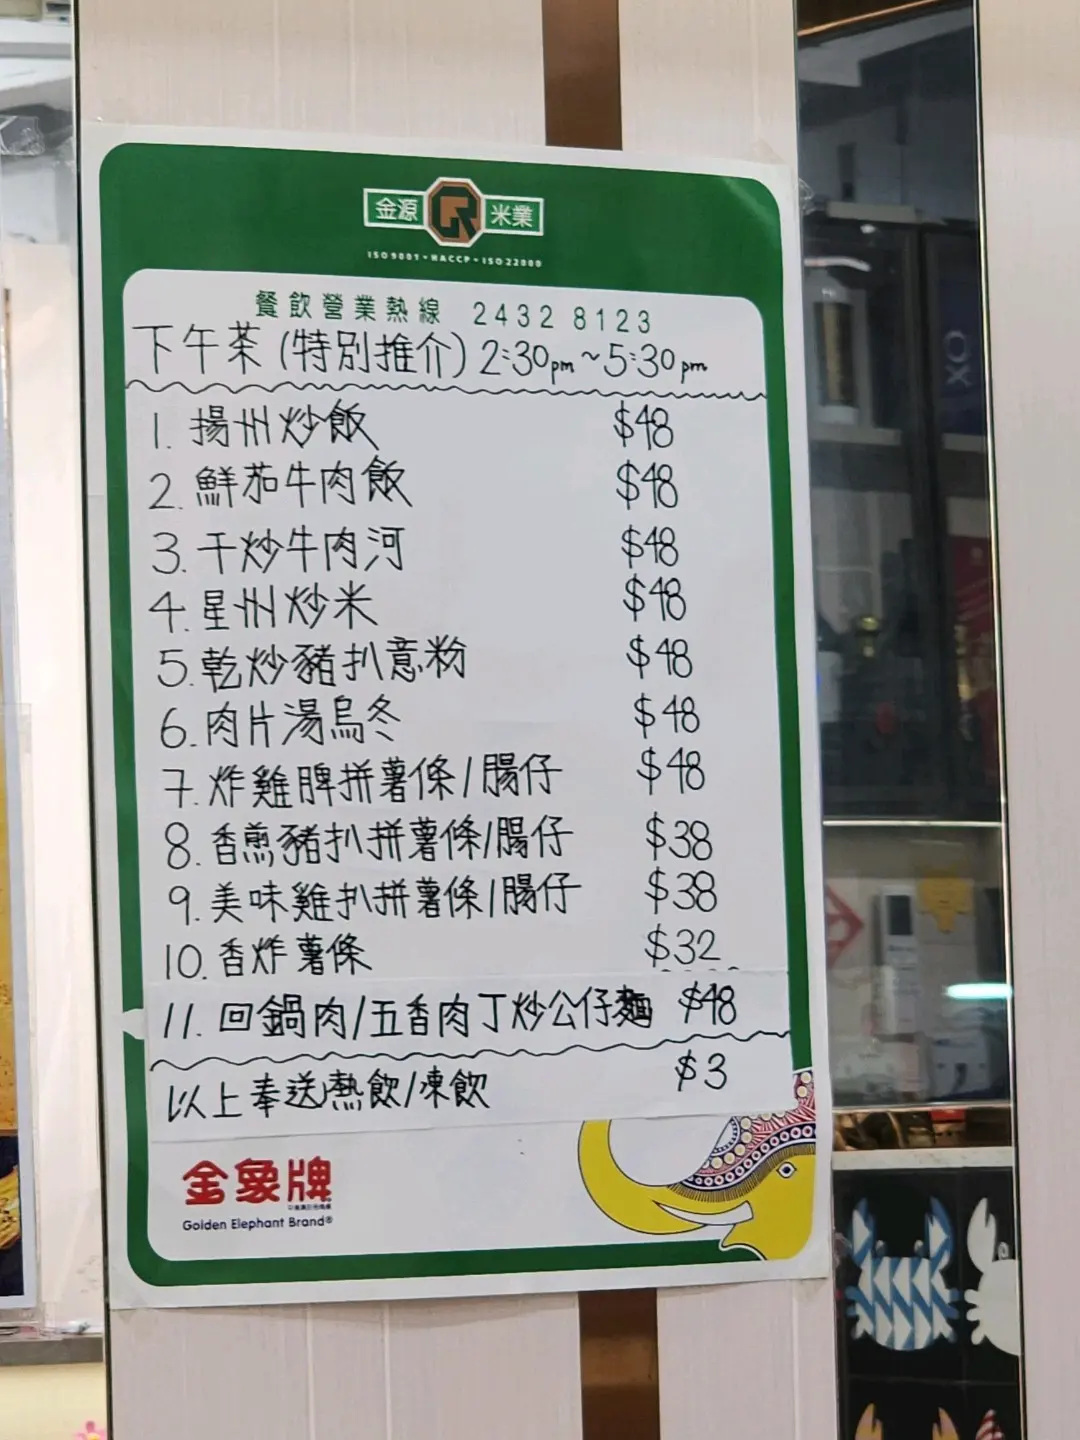 金源 米業
ISO 9001 • HACCP • ISO 22000
餐飲營業熱線 2432 8123
下午茶 (特別推介) 2:30pm ~ 5:30pm
1. 揚州炒飯 $48
2. 鮮茄牛肉飯 $48
3. 干炒牛肉河 $48
4. 星州炒米 $48
5. 乾炒豬扒意粉 $48
6. 肉片湯烏冬 $48
7. 炸雞脾拼薯條/腸仔 $48
8. 香煎豬扒拼薯條/腸仔 $38
9. 美味雞扒拼薯條/腸仔 $38
10. 香炸薯條 $32
11. 回鍋肉/五香肉丁炒公仔麵 $48
以上奉送熱飲/凍飲 $3
金象牌
Golden Elephant Brand®